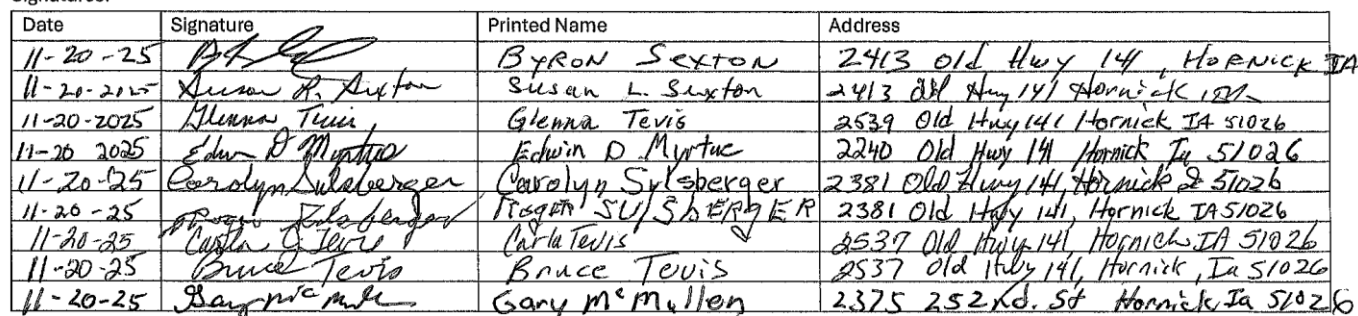 Signatures:
Date Signature Printed Name Address
11-20-25 ByRoN SextoN 2413 Old Hwy 141, HoRNick IA
11-20-2025 Susan L. Sexton Susan L. Sexton 2413 Old Hwy 141 Hornick, IA
11-20-2025 Glenna Tevis Glenna Tevis 2539 Old Hwy 141 Hornick IA 51026
11-20 2025 Edwin D Myrtue Edwin D Myrtue 2240 Old Hwy 141 Hornick Ia 51026
11-20-25 Carolyn Sulsberger Carolyn Sulsberger 2381 Old Hwy 141, Hornick Ia 51026
11-20-25 Roger Sulsberger Roger SUlSbERgER 2381 Old Hwy 141, Hornick IA 51026
11-20-25 Carla J Tevis Carla Tevis 2537 Old Hwy 141, Hornick IA 51026
11-20-25 Bruce Tevis Bruce Tevis 2537 Old Hwy 141, Hornick, Ia 51026
11-20-25 Gary McMullen Gary McMullen 2375 252nd. St Hornick Ia 51026